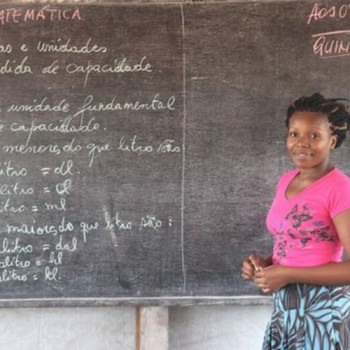 ATEMÁTICA
as e unidades
dida de capacidade
unidade fundamental
e capacidade.
menores do que litro são
litro = dl.
litro = cl
litro = ml
maiores do que litro são:
litro = dal
litro = hl
litro = kl.
AOS 0
QUIN